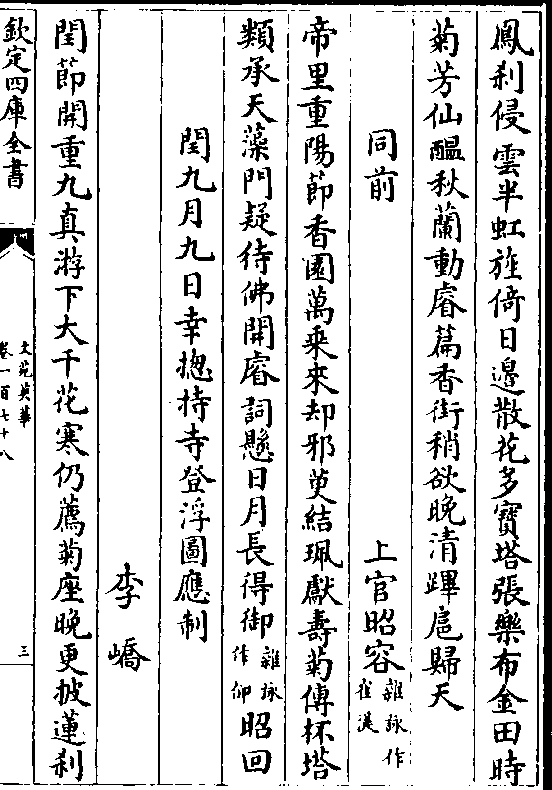 鳳刹侵雲半虹旌倚日邊散花多寳塔張樂布金田時
菊芳仙醖秋蘭動睿篇香街稍欲晚清蹕扈歸天
同前
上官昭容雜詠作崔湜
帝里重陽節香園萬乗來却邪萸結珮獻壽菊傳杯塔
類承天藻門疑待佛開睿詞懸日月長得御雜詠作仰昭回
閏九月九日幸揔持寺登浮圖應制
李嶠
閏節開重九真遊下大千花寒仍薦菊座晚更披蓮刹
欽定四庫全書
文苑英華
卷一百七十八
三